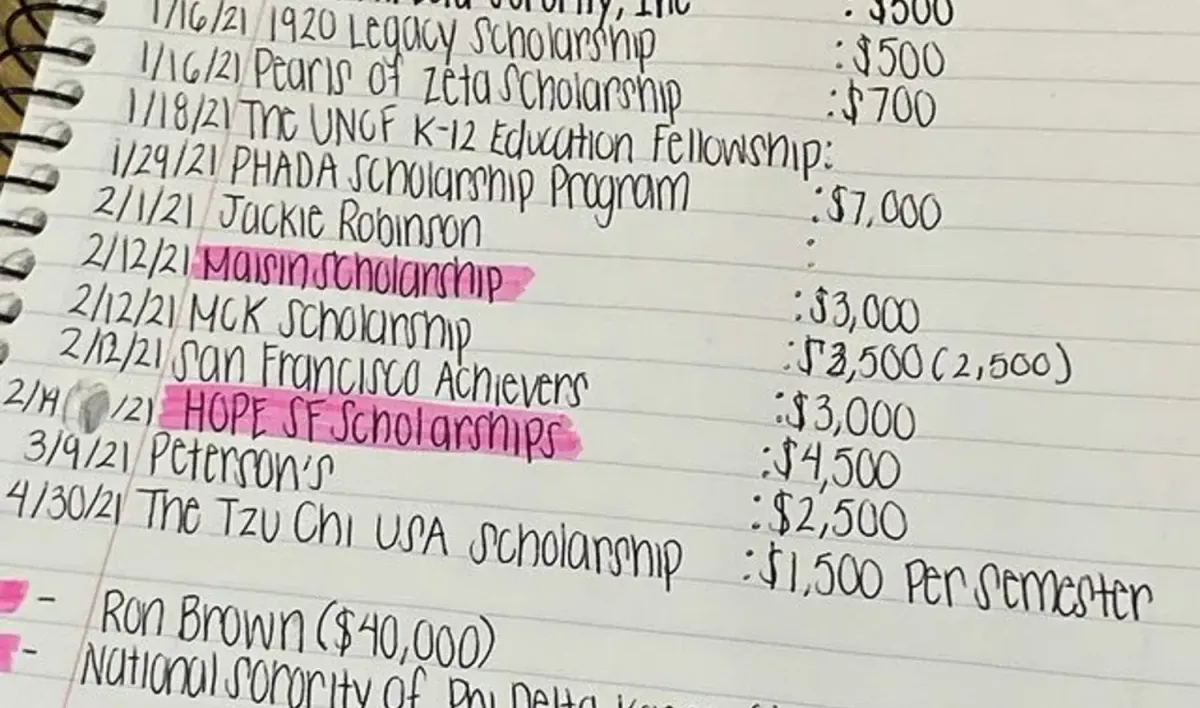 Sorority, Inc : $500
1/16/21 1920 Legacy Scholarship : $500
1/16/21 Pearls of Zeta Scholarship : $700
1/18/21 The UNCF K-12 Education Fellowship:
1/29/21 PHADA Scholarship Program : $7,000
2/1/21 Jackie Robinson :
2/12/21 Maisin Scholarship : $3,000
2/12/21 MCK Scholarship : $3,500 (2,500)
2/12/21 San Francisco Achievers : $3,000
2/14 /21 HOPE SF Scholarships : $4,500
3/9/21 Peterson's : $2,500
4/30/21 The Tzu Chi USA Scholarship : $1,500 Per Semester
- Ron Brown ($40,000)
- National Sorority of Phi Delta